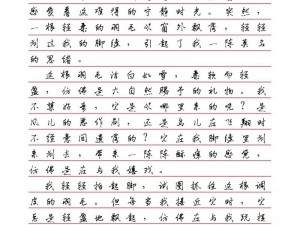 感受着这难得的宁静时光。突然，
一根轻柔的羽毛从窗外飘落，轻轻
划过我的脚注，引起了我一阵莫名
的思绪。
这根羽毛洁白如雪，柔软而轻
盈，仿佛是大自然赐予的礼物。我
不禁好奇，它是从哪里来的呢？是
风儿的恶作剧，还是鸟儿在飞翔时
不经意间遗落的？它在我脚注里划
来划去，带来一阵阵酥痒的感觉，
仿佛是在与我嬉戏。
我轻轻抬起脚，试图抓住这根调
皮的羽毛。但每当我接近它时，它
总是轻盈地飘起，仿佛在与我玩捉